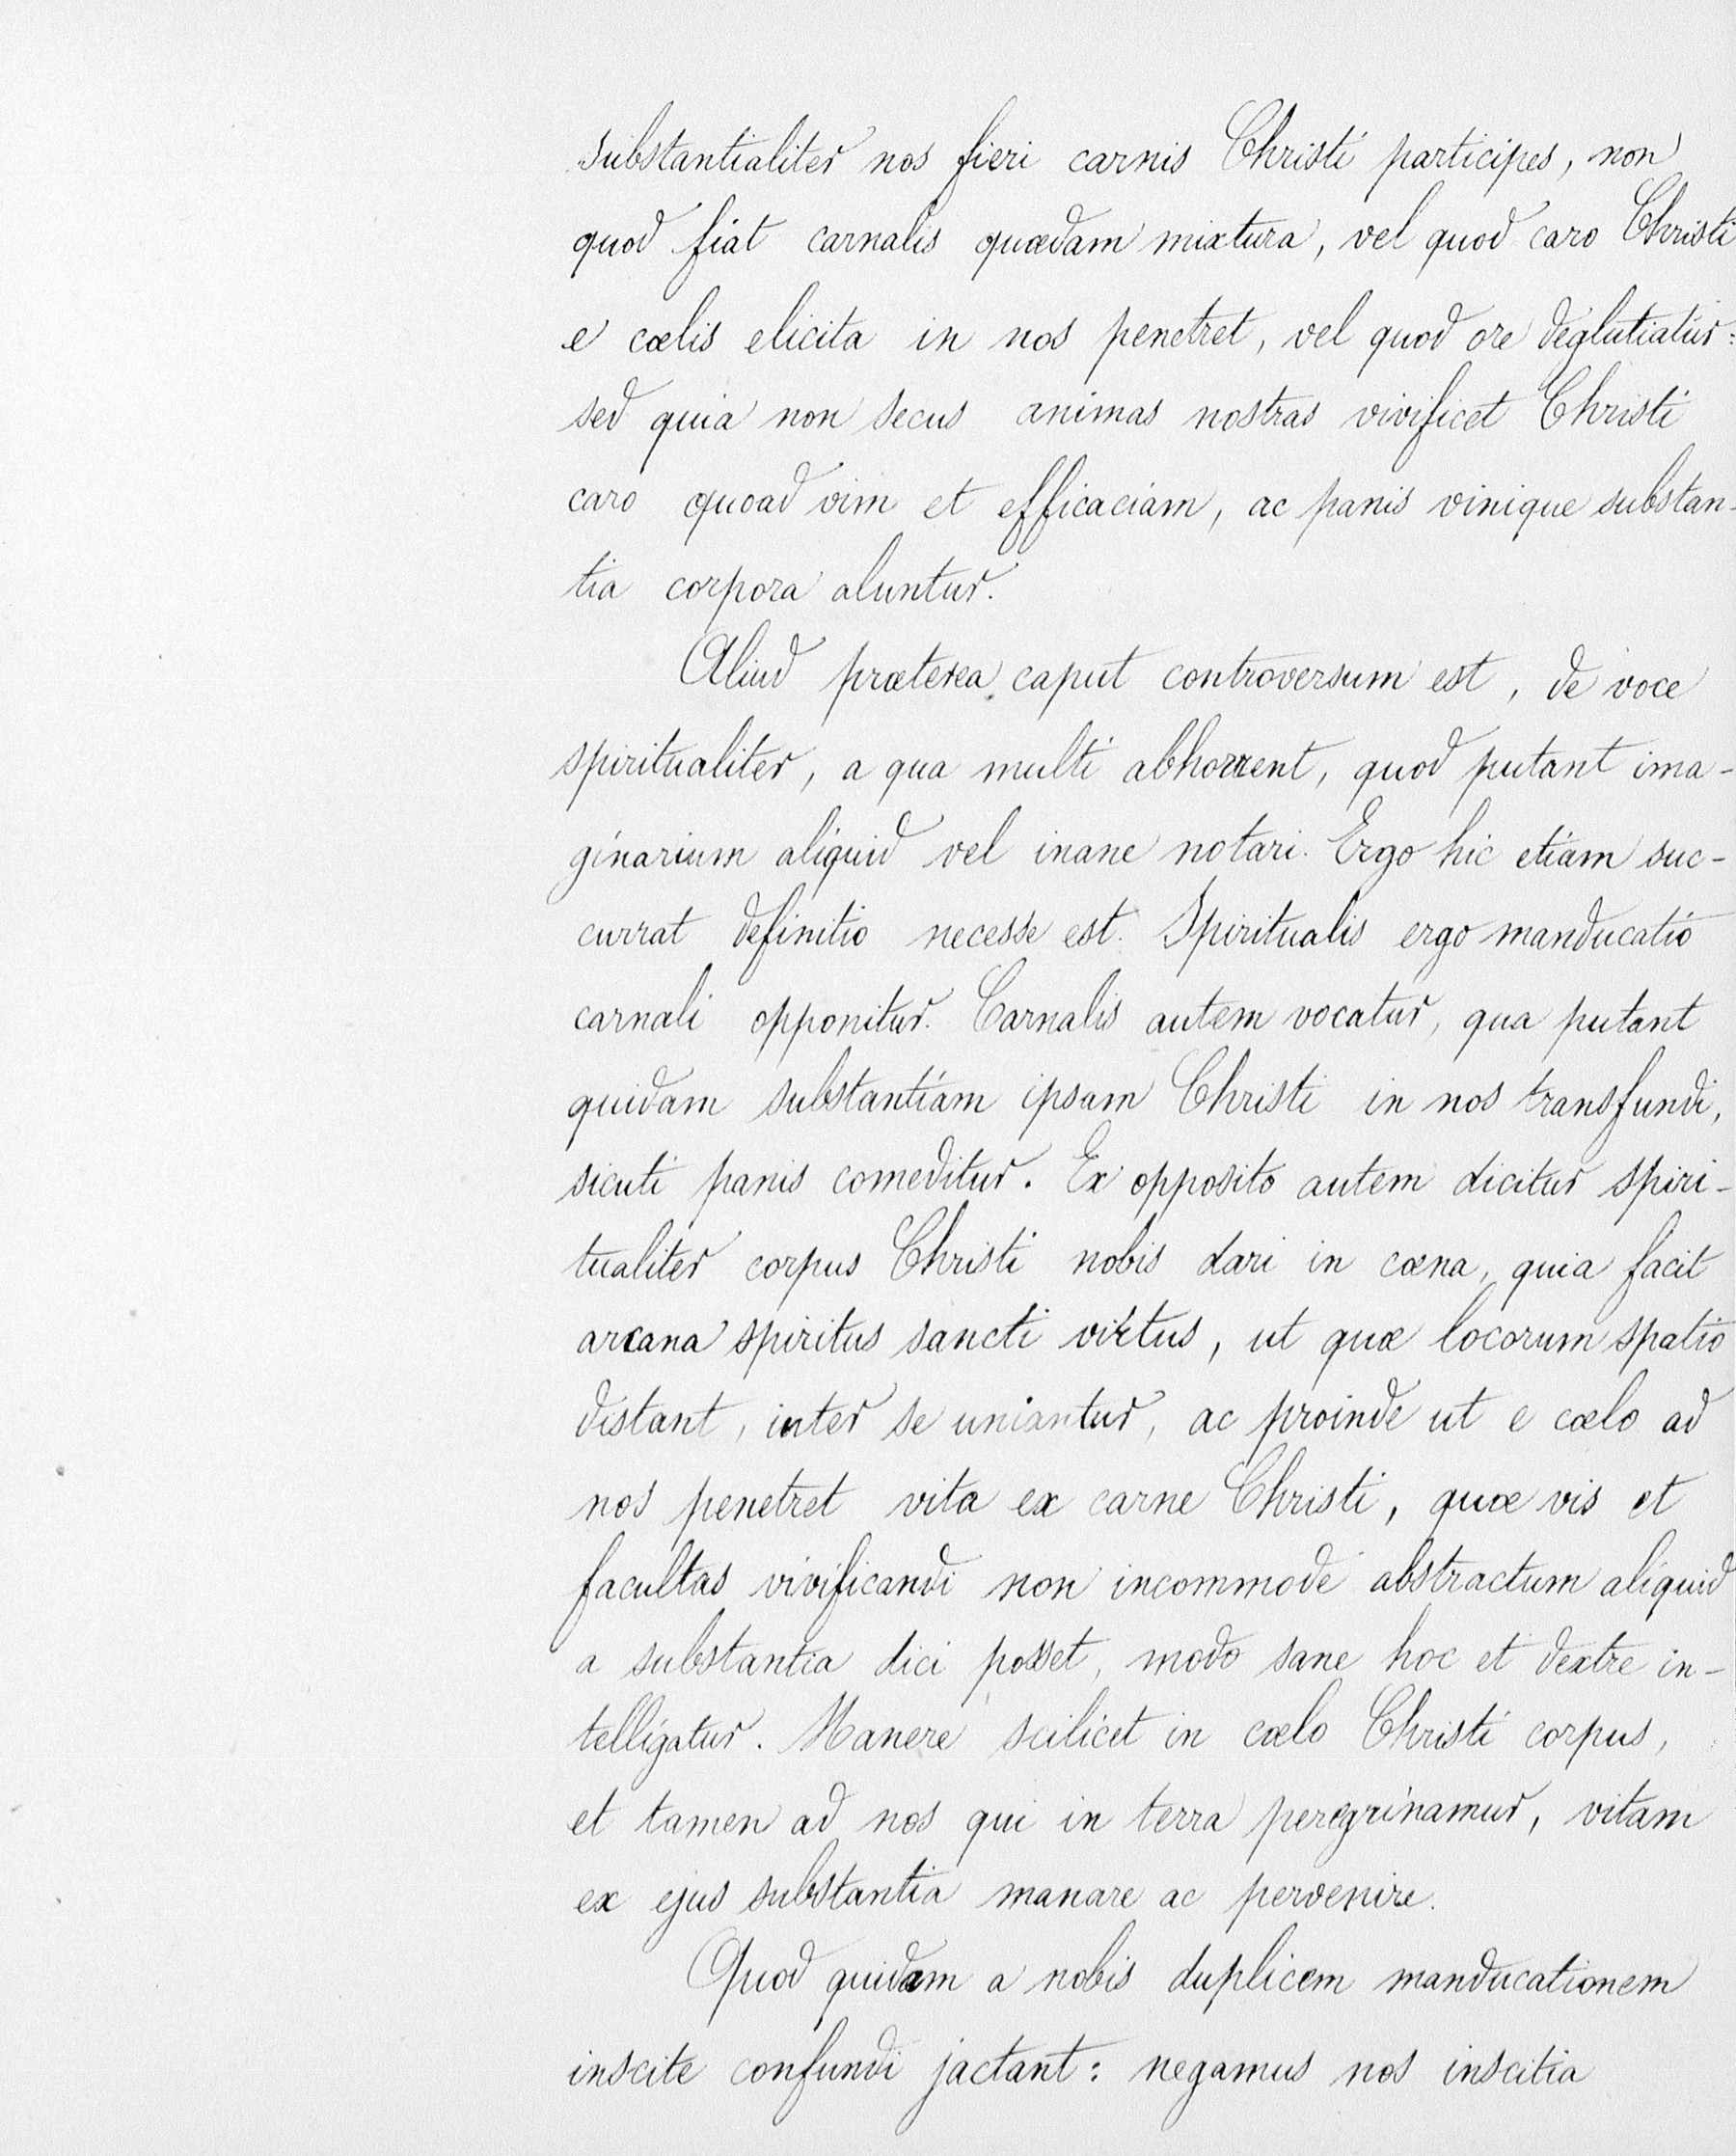 substantialiter nos fieri carnis Christi participes, non
quod fiat carnalis quædam mixtura, vel quod caro Christi
e cœlis elicita in nos penetret, vel quod ore deglutiatur:
sed quia non secus animas nostras vivificet Christi
caro quoad vim et efficaciam, ac panis vinique substan-
tia corpora aluntur.
Aliud præterea caput controversum est, de voce
spiritualiter, a qua multi abhorrent, quod putant ima-
ginarium aliquid vel inane notari. Ergo hic etiam suc-
currat definitio necesse est. Spiritualis ergo manducatio
carnali opponitur. Carnalis autem vocatur, qua putant
quidam substantiam ipsam Christi in nos transfundi,
sicuti panis comeditur. Ex opposito autem dicitur spiri-
tualiter corpus Christi nobis dari in cœna, quia facit
arcana spiritus sancti virtus, ut quæ locorum spatio
distant, inter se uniantur, ac proinde ut e cœlo ad
nos penetret vita ex carne Christi, quæ vis et
facultas vivificandi non incommode abstractum aliquid
a substantia dici posset, modo sane hoc et dextre in-
telligatur. Manere scilicet in cœlo Christi corpus,
et tamen ad nos qui in terra peregrinamur, vitam
ex ejus substantia manare ac pervenire.
Quod quidam a nobis duplicem manducationem
inscite confundi jactant: negamus nos inscitia